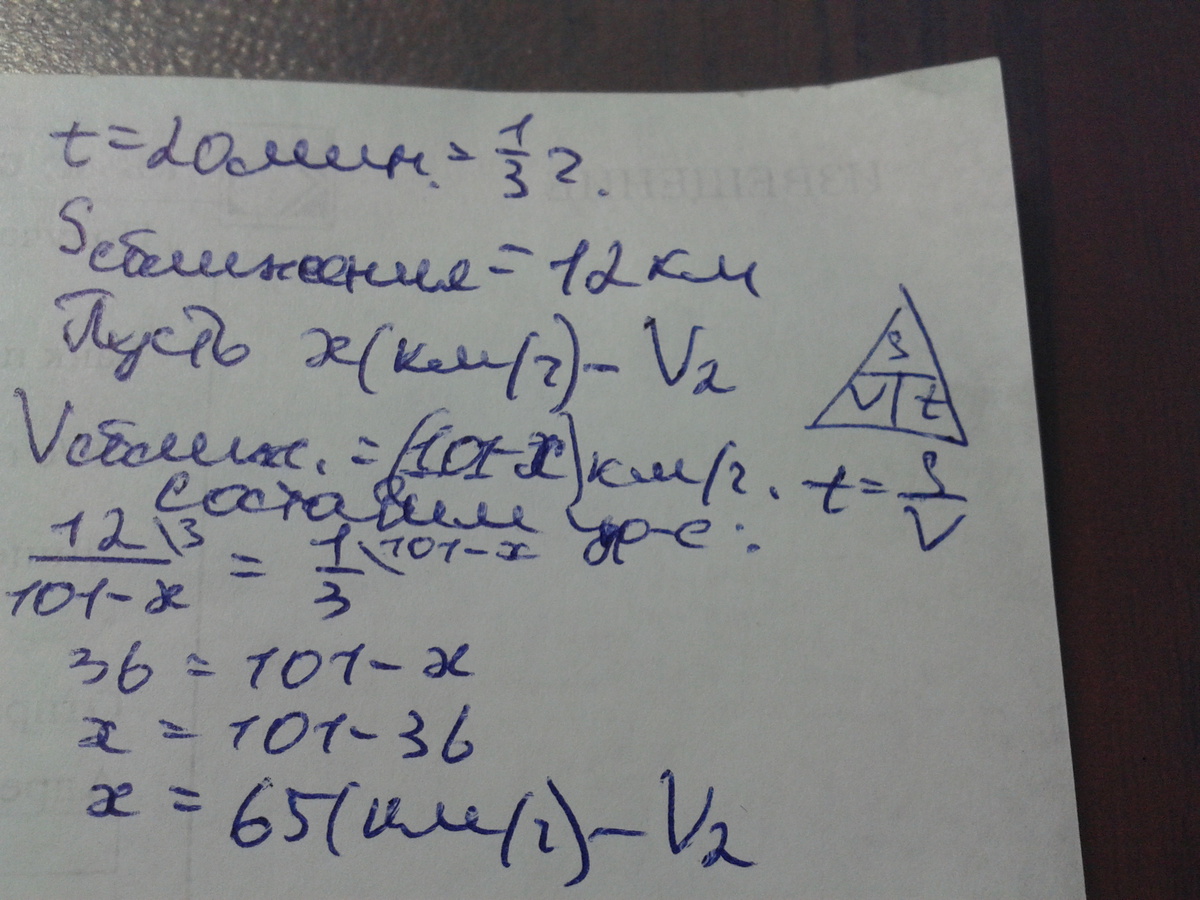 t=20мин.=1/3 ч.
Sсближения=12км
Пусть x(км/ч)-V2
S
V|t
Vсближ.=(101-x)км/ч.
t=S/V
составим ур-е:
12\3/101-x = 1\101-x/3
36=101-x
x=101-36
x=65(км/ч)-V2
ИЗВЕЩЕНИЕ